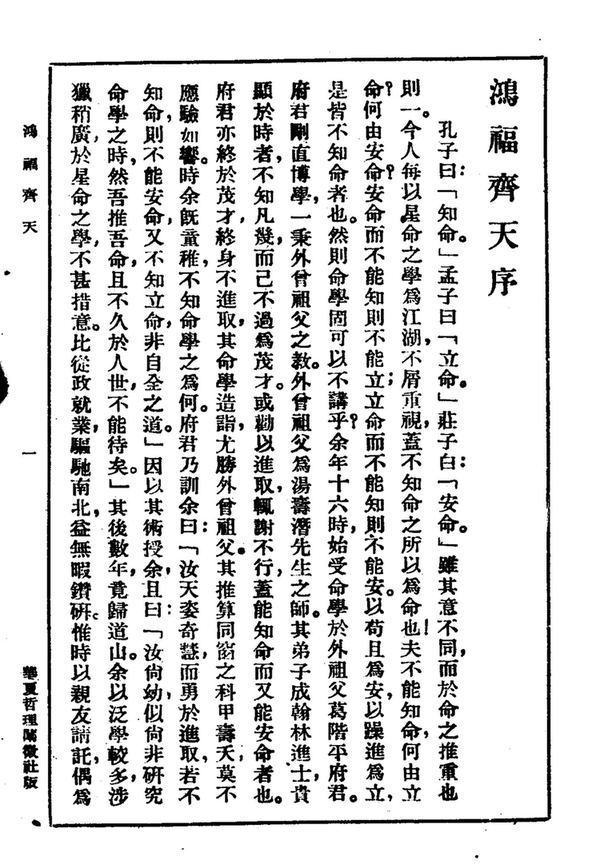 鴻福齊天序
孔子曰：「知命。」孟子曰「立命。」莊子白「安命。」雖其意不同，而於命之推重也
則一。今人每以星命之學爲江湖，不屑重視，蓋不知命之所以爲命也！夫不能知命，何由立
命？何由安命？安命而不能知則不能立；立命而不能知則不能安。以苟且爲安，以躁進爲立，
是皆不知命者也。然則命學固可以不講乎？余年十六時，始受命學於外祖父葛階平府君。
府君剛直博學，一秉外曾祖父之教。外曾祖父爲湯壽潛先生之師。其弟子成翰林進士貴
顯於時者，不知凡幾，而己不過爲茂才。或勸以進取，輒謝不行，蓋能知命而又能安命者也。
府君亦終於茂才，終身不進取，其命學造詣，尤勝外曾祖父。其推算同窗之科甲壽夭，莫不
應驗如響。時余既童稚，不知命學之爲何。府君乃訓余曰：「汝天姿奇慧，而勇於進取，若不
知命，則不能安命，又不知立命，非自全之道。」因以其術授余，且曰：「汝尙幼，似尙非研究
命學之時，然吾推吾命，且不久於人世，不能待矣。」其後數年，竟歸道山。余以泛學較多，涉
獵稍廣，於星命之學，不甚措意。比從政就業，驅馳南北，益無暇鑽研。惟時以親友請託，偶爲
鴻福齊天
一
華夏哲理闡微社版